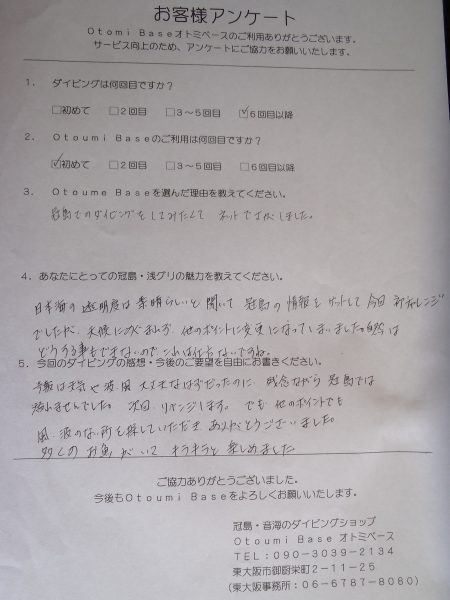 お客様アンケート
Otomi Baseオトミベースのご利用ありがとうございます。
サービス向上のため、アンケートにご協力をお願いいたします。
1. ダイビングは何回目ですか?
□初めて □2回目 □3~5回目 ☑6回目以降
2. Otoumi Baseのご利用は何回目ですか?
☑初めて □2回目 □3~5回目 □6回目以降
3. Otoume Baseを選んだ理由を教えてください。
冠島でのダイビングをしてみたくて ネットでさがしました。
4. あなたにとっての冠島・浅グリの魅力を教えてください。
日本海の透明度は素晴らしいと聞いて 冠島の情報をゲットして今回 初チャレンジ
でしたが、天候にめぐまれず、他のポイントに変更になってしまいました。自然は
どうする事もできないので、これは仕方ないですね。
5. 今回のダイビングの感想・今後のご要望を自由にお書きください。
予報は天気も波、風 大丈夫なはずだったのに、残念ながら冠島では
潜れませんでした。次回、リベンジします。でも 他のポイントでも
風、波のない所を探していただき ありがとうございました。
多くのお魚がいて キラキラと楽しめました
ご協力ありがとうございました。
今後もOtoumi Baseをよろしくお願いいたします。
冠島・音海のダイビングショップ
Otoumi Base オトミベース
TEL:090-3039-2134
東大阪市御厨栄町2-11-25
(東大阪事務所:06-6787-8080)